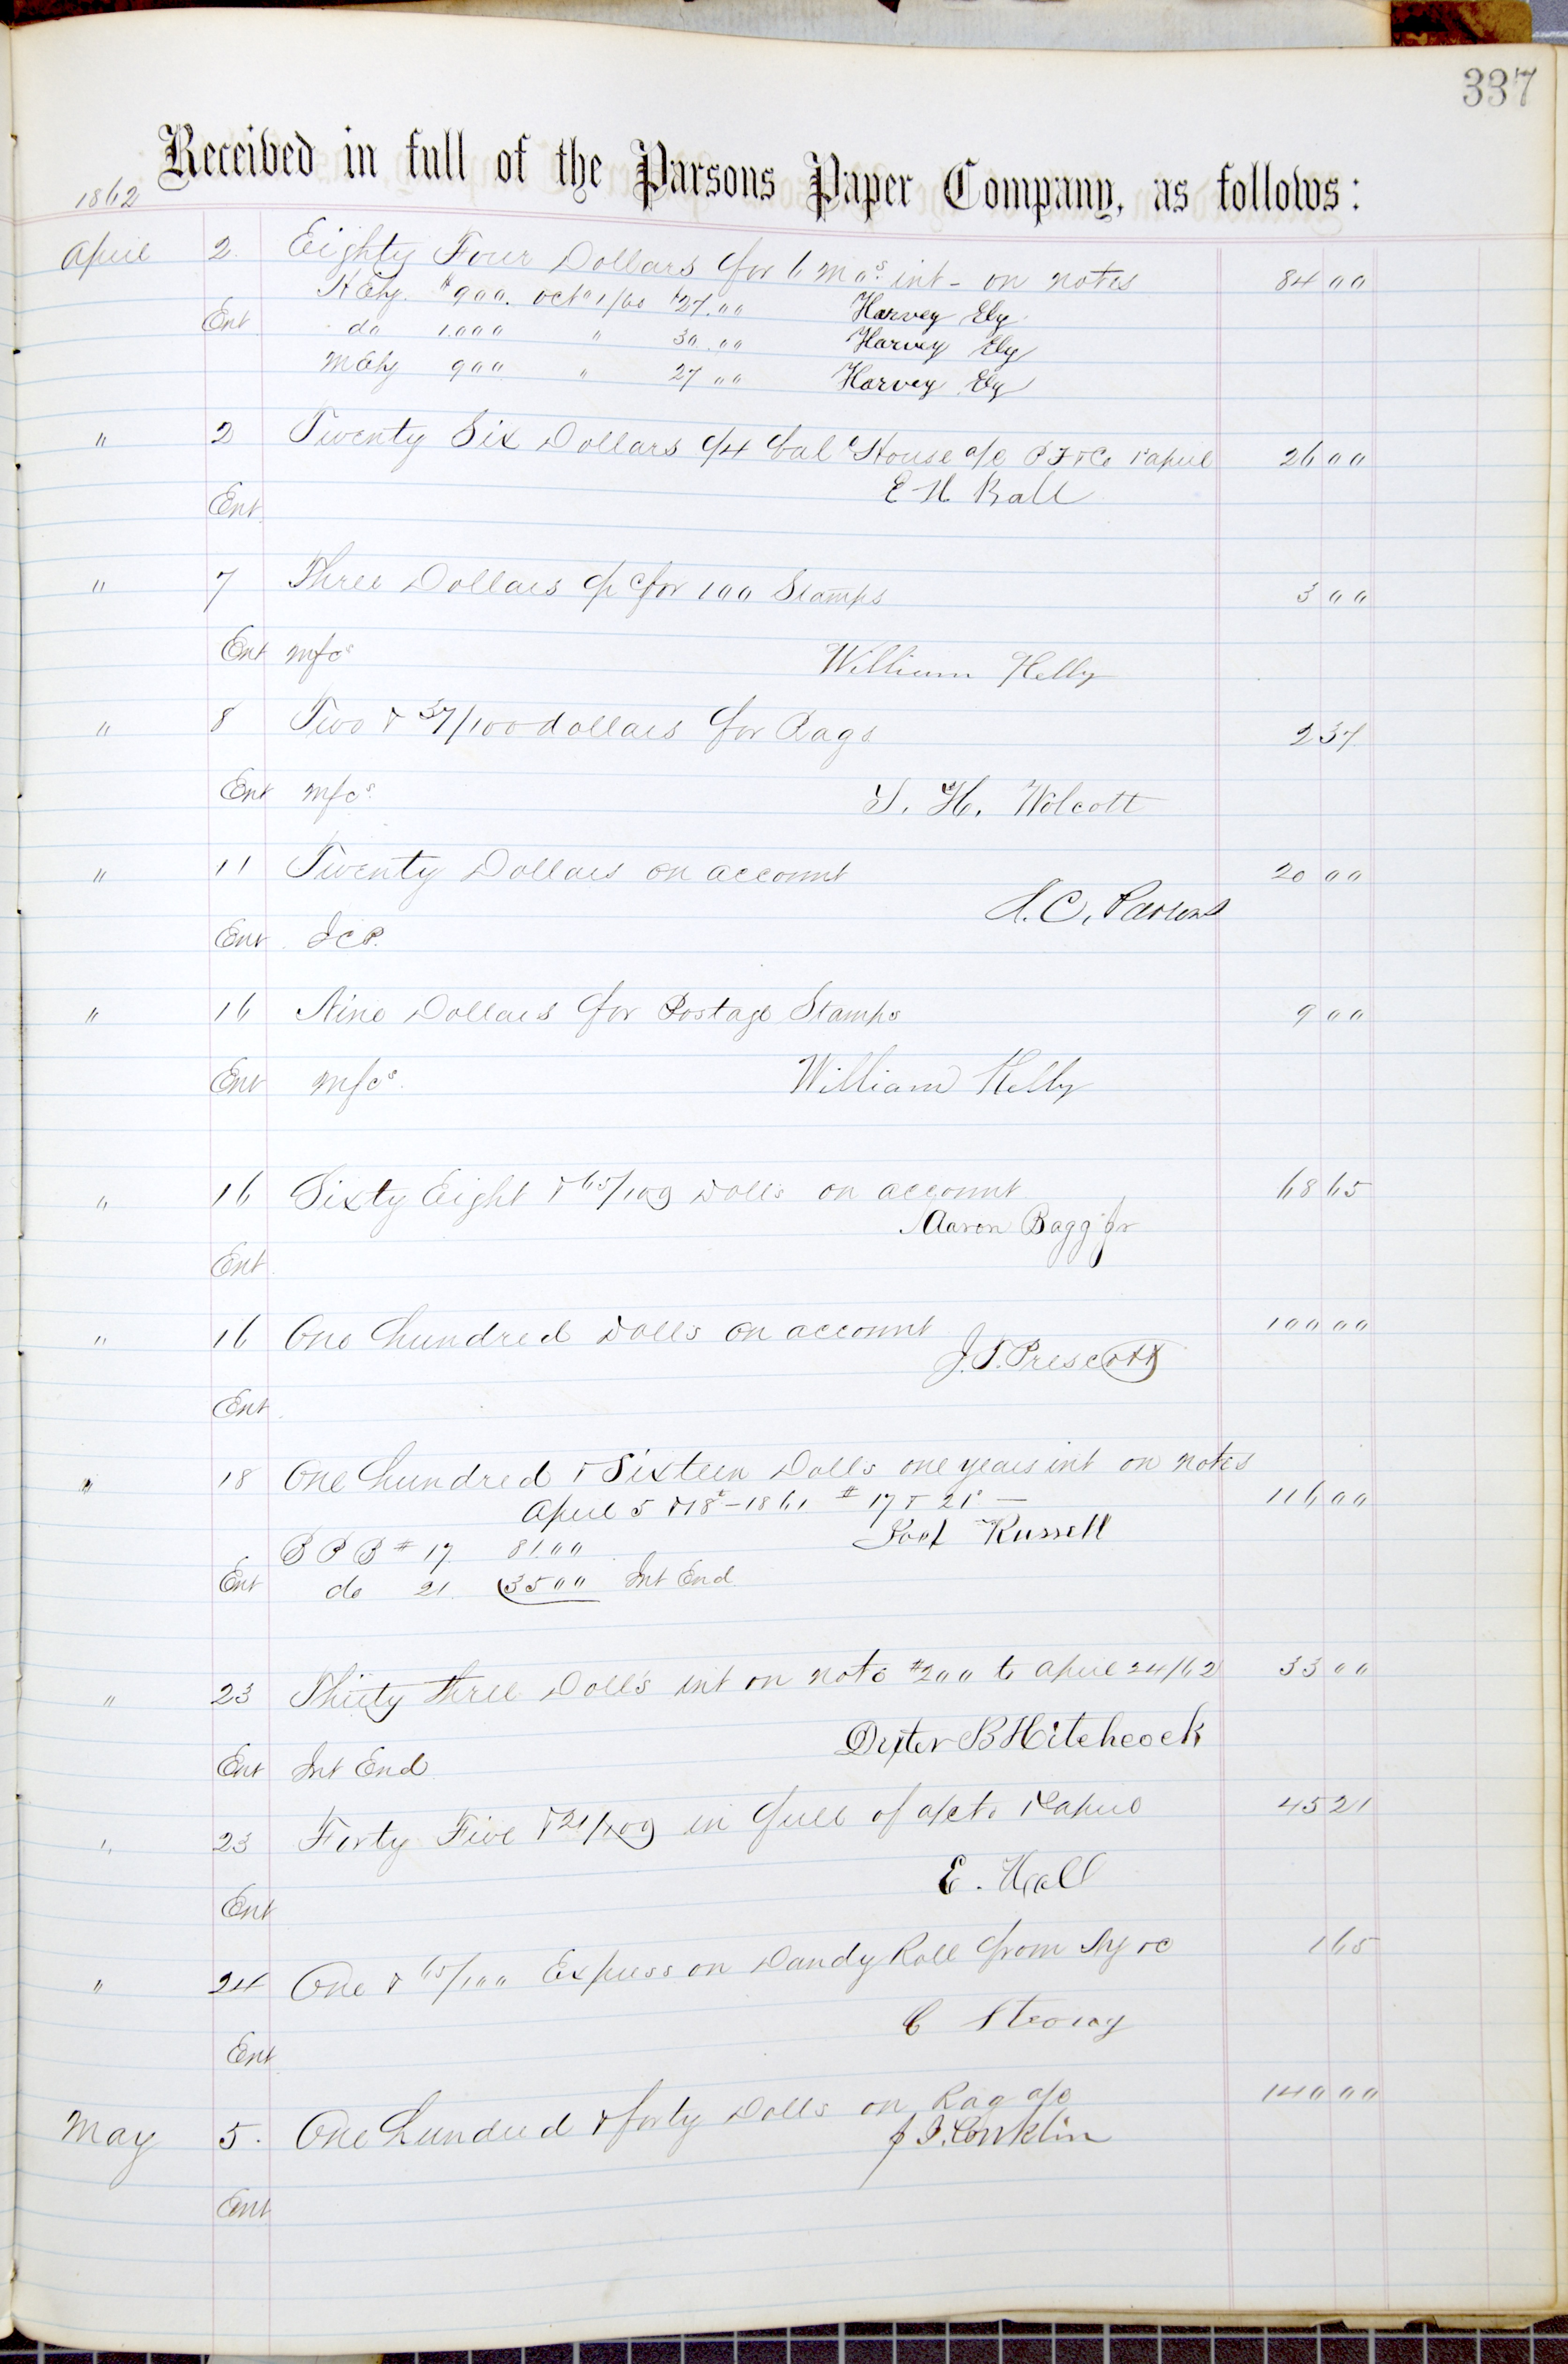 337
Received in full of the Parsons Paper Company, as follows:
1862
April 2 Eighty Four Dollars for 6 Mos. int - on notes 84 00
H Ely. $900. Oct 1/60 $27.00 Harvey Ely
Ent do 1.000 " 30.00 Harvey Ely
M Ely 900 " 27 00 Harvey Ely
" 2 Twenty Six Dollars House a/c 26 00
E H Ball
Ent
" 7 Three Dollars for 100 Stamps 3 00
Ent mfcs William Kelly
" 8 Two & 37/100 dollars for Rags 2 37
Ent mfcs. S. H. Wolcott
" 11 Twenty Dollars on account 20 00
J. C. Parsons
Ent J C P.
" 16 Nine Dollars for Postage Stamps 9 00
Ent mfcs. William Kelly
" 16 Sixty Eight & 65/100 Dolls on account 68 65
Aaron Bagg Jr
Ent
" 16 One hundred Dolls on account 100 00
J. T. Prescott
Ent
" 18 One hundred & Sixteen Dolls one years int on notes
April 5 & 18 - 1861 # 17 & 21 — 116 00
B P B # 17 81.00 Russell
Ent do 21. 35 00 Int End
" 23 Thirty three Dolls int on note $200 to April 24/62 33 00
Dexter B Hitchcock
Ent Int End
" 23 Forty Five & 21/100 in full of a/c to 45 21
E. Hall
Ent
" 24 One & 65/100 Express on Dandy Roll from 1 65
C Strong
Ent
May 5. One hundred & forty Dolls on Rag a/c 140 00
J. Conklin
Ent